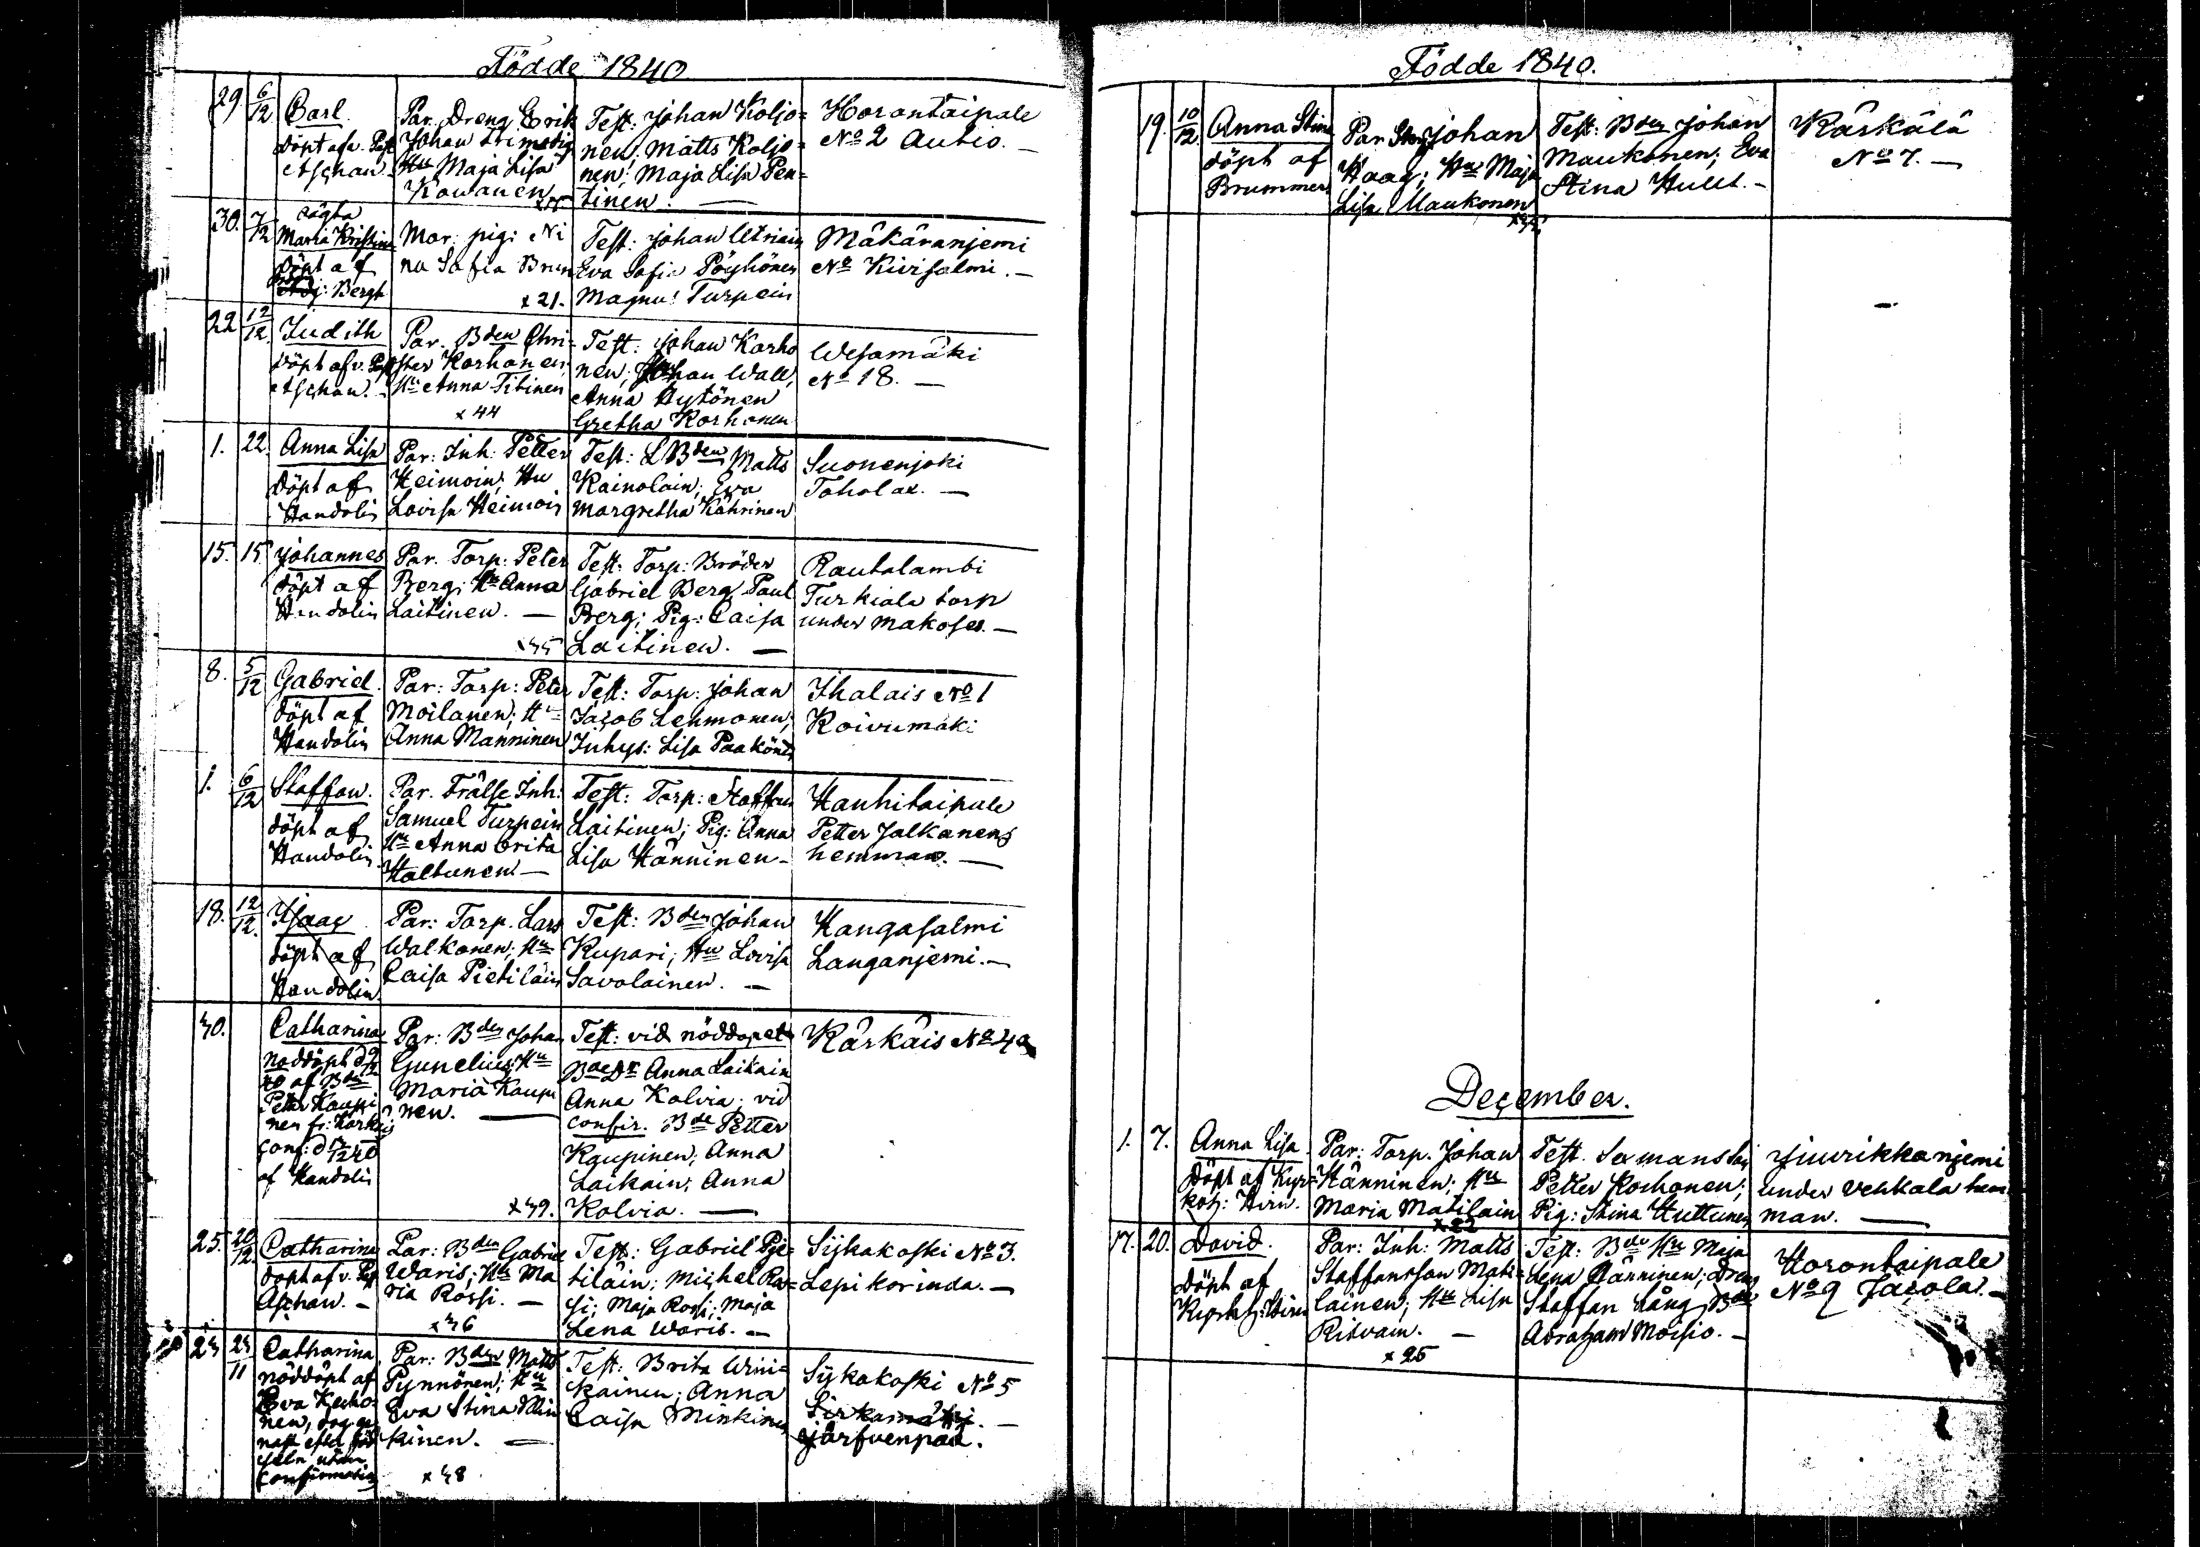 Födde 1840
29 6/12 Carl.
döpt af v. Past
Aschan.
Par. Dreng Erik
Johan Trimodig
Hu Maja Lisa
Kovanen
Test. Johan Koljo=
nen; Matts Koljo=
nen; Maja Lisa Pen=
tinen. —
Horontaipale
No 2 Autio. —
30. 7/12 oägta
Maria Kristina
döpt af
Adj: Bergh
Mor. pig: Ni
na Sofia Brun
x 21.
Test: Johan Utriain
Eva Sofia Pöyhönen
Magnus Turpein
Mäkäranjemi
No Kivisalmi. —
22 12/12 Judith
döpt af v. Past
Aschan. -
Par. Bden Chri=
ster Korhonen
Hu Anna Titinen
x 44
Test: Johan Korho
nen; Johan Wall,
Anna Hytönen
Gretha Korhonen
Wesamäki
No 18. —
1. 22. Anna Lisa
döpt af
Handolin
Par: Inh: Petter
Heimoin; Hu
Lovisa Heimoin
Test: LBden Matts
Kainolain; Eva
Margretha Kährinen
Suonenjoki
Toholax. —
15. 15. Johannes
döpt af
Handolin
Par. Torp: Peter
Berg; Hu Anna
Laitinen. —
x 45
Test. Torp: Bröder
Gabriel Berg Paul
Berg; Pig: Caisa
Laitinen. —
Rautalambi
Turkiala torp
under Makoses. —
8. 5/12 Gabriel.
döpt af
Handolin
Par: Torp: Peter
Moilanen; Hu
Anna Manninen
Test: Torp. Johan
Jacob Lehmonen;
Inhys: Lisa Paakönen
Ihalais No 1
Koivumäki
1. 6/12 Staffan.
döpt af
Handolin.
Par. Frälse Inh:
Samuel Turpein
Hu Anna Brita
Haltunen —
Test: Torp: Staffan
Laitinen; Pig: Anna
Lisa Hänninen -
Hanhitaipale
Petter Jalkanens
hemman. —
18. 12/12. Isaac
döpt af
Handolin
Par: Torp. Lars
Walkonen; Hu
Caisa Pietiläin
Test: Bden Johan
Kupari; Hu Lovisa
Savolainen. —
Hangasalmi
Langanjemi. —
40. Catharina
nöddöpt d 2/12
40 af Bden
Peter Kaupi
nen fr: Kärkäis
conf: d 12/12 40
af Handolin
Par: Bden Johan
Gunelius; Hu
Maria Kaupi
nen. —
x 49.
Test: vid nöddopet
Anna Laikain
Anna Kolvia; vid
confir. Bde Petter
Kaupinen; Anna
Laikain; Anna
Kolvia. —
Kärkäis No 4
25. 20/12. Catharina
döpt af v. Past
Aschan. —
Par: Bden Gabriel
Waris; Hu Ma
ria Rossi. —
x 46
Test: Gabriel Pie=
tiläin; Michel Ros=
si; Maja Rossi; Maja
Lena Waris. —
Sijkakoski No 3.
Lepikorinda. —
24 24/11 Catharina
nöddöpt af
Eva Kerho=
nen, dog ge
nast efter föd
seln utan
confirmation
Par: Bden Matts
Pynnönen; Hu
Eva Stina Min
kinen. —
x 48
Test: Brita Wini=
kainen; Anna
Caisa Minkinen
Sijkakoski No 5
Sirkamäki. —
Järfvenpää.
Födde 1840.
19. 10/12. Anna Stina
döpt af
Brummer
Par Johan
Haag; Hu Maja
Lisa Maukonen
Test: Bden Johan
Maukonen; Eva
Stina Hult. -
Kärkälä
No 7. —
December.
1. 7. Anna Lisa
döpt af Kyr=
koh: Hirn.
Par: Torp. Johan
Hänninen; Hu
Maria Matilain
x 22
Test. Sexmans Son
Petter Korhonen;
Pig: Stina Huttunen
Jiurikkanjemi
under Vehkala hem
man. —
17. 20. David.
döpt af
Kyrkoh: Hirn
Par: Inh: Matts
Staffansson Mati=
lainen; Hu Lisa
Ritvain. —
x 25
Test: Bde Hu Maja
Lena Hänninen; Dreng
Staffan Lång; Bde
Abraham Moisio. -
Horontaipale
No 9 Jacola. —